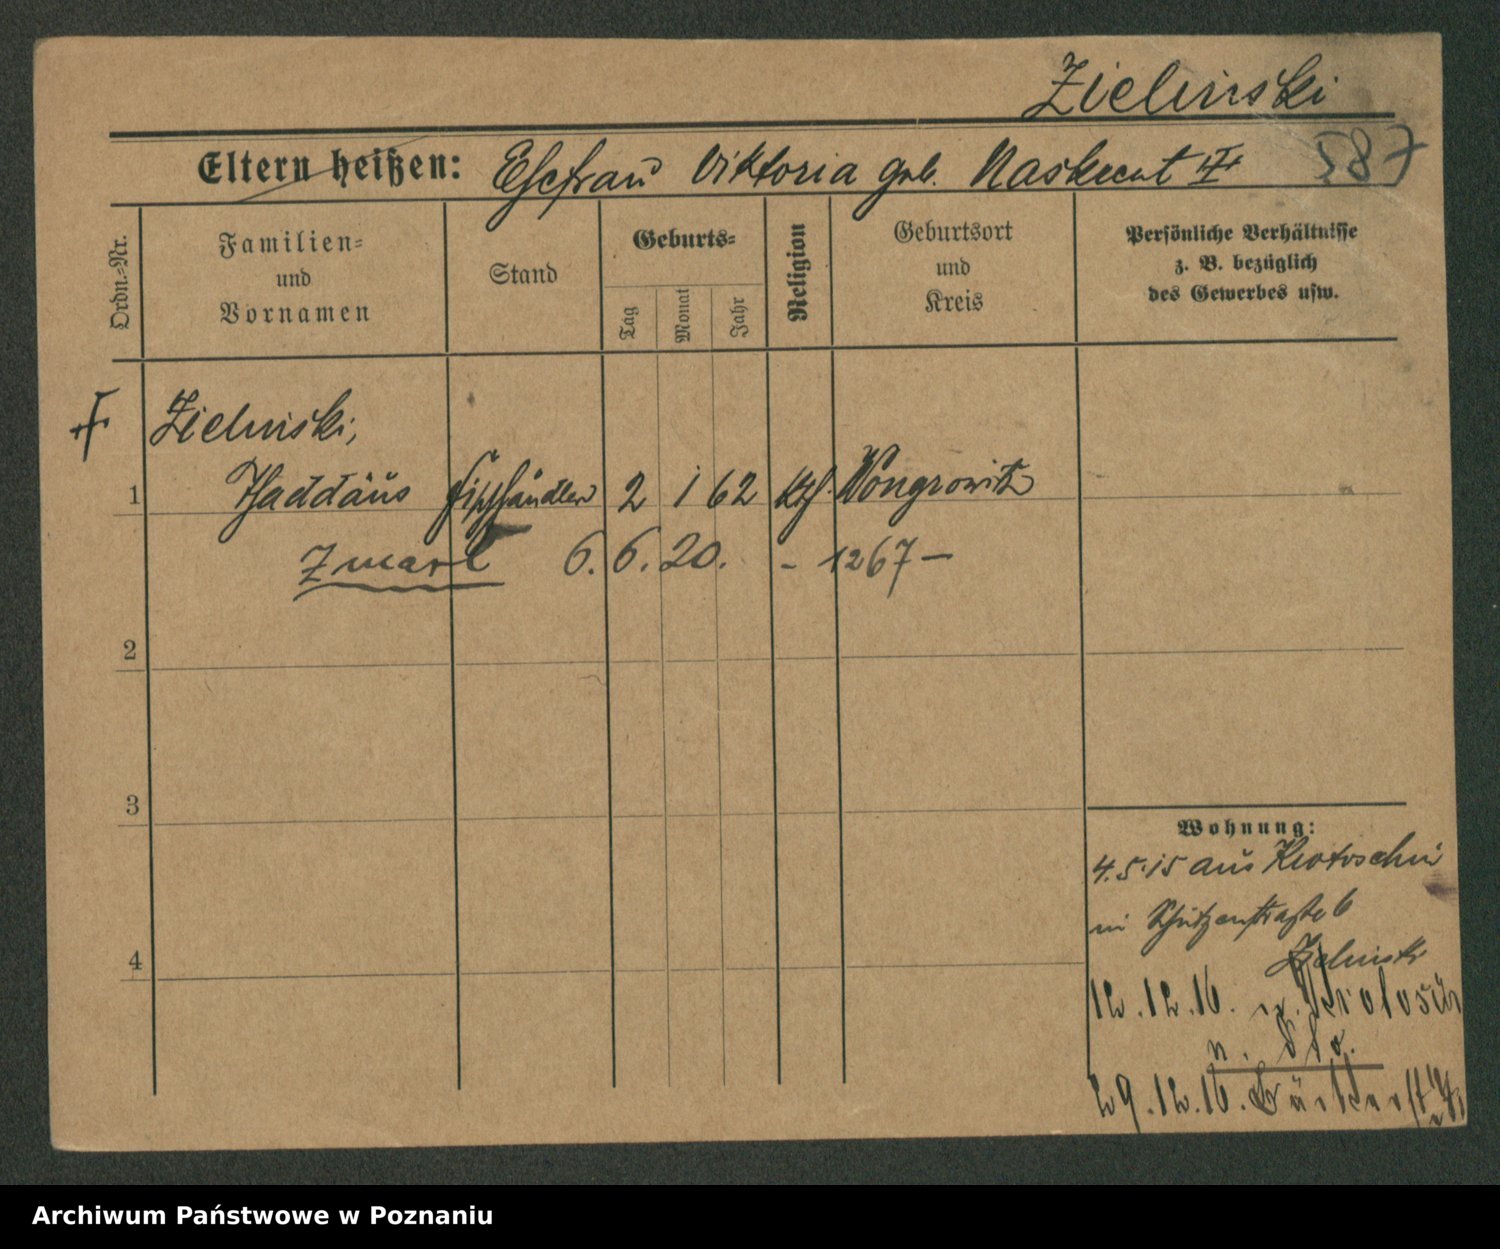 Zielinski
587
Eltern heißen: Ehefrau Viktoria geb. Naskrent II
Ordn.=Nr.
Familien=
und
Vornamen
Stand
Geburts=
Tag
Monat
Jahr
Religion
Geburtsort
und
Kreis
Persönliche Verhältnisse
z. B. bezüglich
des Gewerbes usw.
Zielinski,
1 Thaddäus Fischhändler 2 1 62 kth. Wongrowitz
Zmarł 6. 6. 20. – 1267 –
2
3
4
Wohnung:
4.5.15 aus Krotoschin
in Schützenstraße 6
Zielinski
12.12.16.
29.12.16.
Archiwum Państwowe w Poznaniu